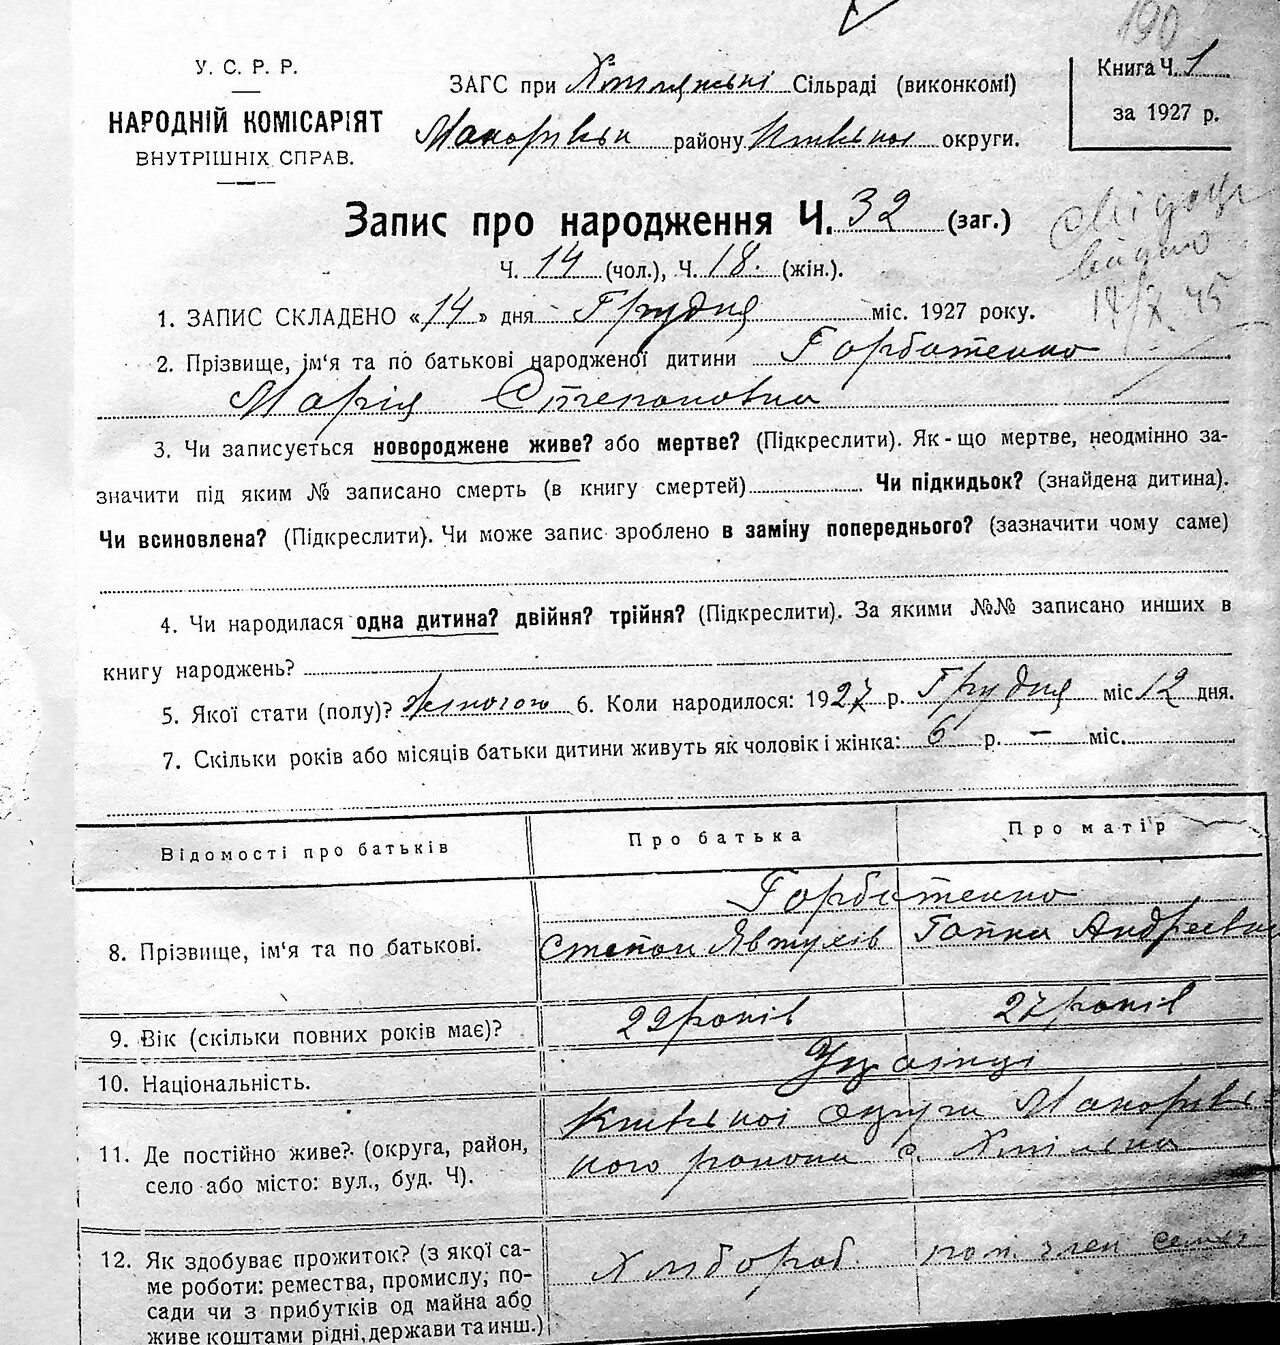 190
У. С. Р. Р.
НАРОДНІЙ КОМІСАРІЯТ
ВНУТРІШНІХ СПРАВ.
ЗАГС при Сільраді (виконкомі)
Макарівськ району Київської округи.
Книга Ч. 1
за 1927 р.
Запис про народження Ч. 32 (заг.)
Ч. 14 (чол.), Ч. 18. (жін.).
видано
1. ЗАПИС СКЛАДЕНО «14» дня Грудня міс. 1927 року.
2. Прізвище, ім‘я та по батькові народженої дитини Горбатенко
Марія Степановна
3. Чи записується новороджене живе? або мертве? (Підкреслити). Як-що мертве, неодмінно за-
значити під яким № записано смерть (в книгу смертей) Чи підкидьок? (знайдена дитина).
Чи всиновлена? (Підкреслити). Чи може запис зроблено в заміну попереднього? (зазначити чому саме)
4. Чи народилася одна дитина? двійня? трійня? (Підкреслити). За якими №№ записано инших в
книгу народжень?
5. Якої стати (полу)? жіночою 6. Коли народилося: 1927 р. Грудня міс 12 дня.
7. Скільки років або місяців батьки дитини живуть як чоловік і жінка: 6 р. — міс.
Відомості про батьків Про батька Про матір
Горбатенко
8. Прізвище, ім‘я та по батькові. Степан Явтухів Гапка Андреевна
9. Вік (скільки повних років має)? 29 років 27 років
10. Національність. Українці
Київської округи Макарівсь-
11. Де постійно живе? (округа, район, кого района с. Хмільна
село або місто: вул., буд. Ч).
12. Як здобуває прожиток? (з якої са- Хлібороб. пом. член семьї
ме роботи: ремества, промислу; по-
сади чи з прибутків од майна або
живе коштами рідні, держави та инш.)